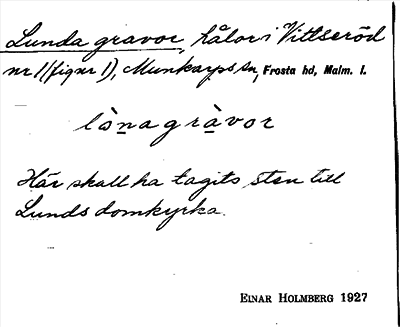 Lunda gravor, hålor i Vittseröd
nr 1 (fig nr 1), Munkarps sn, Frosta hd, Malm. l.
lònagràvor
Här skall ha tagits sten till
Lunds domkyrka.
EINAR HOLMBERG 1927